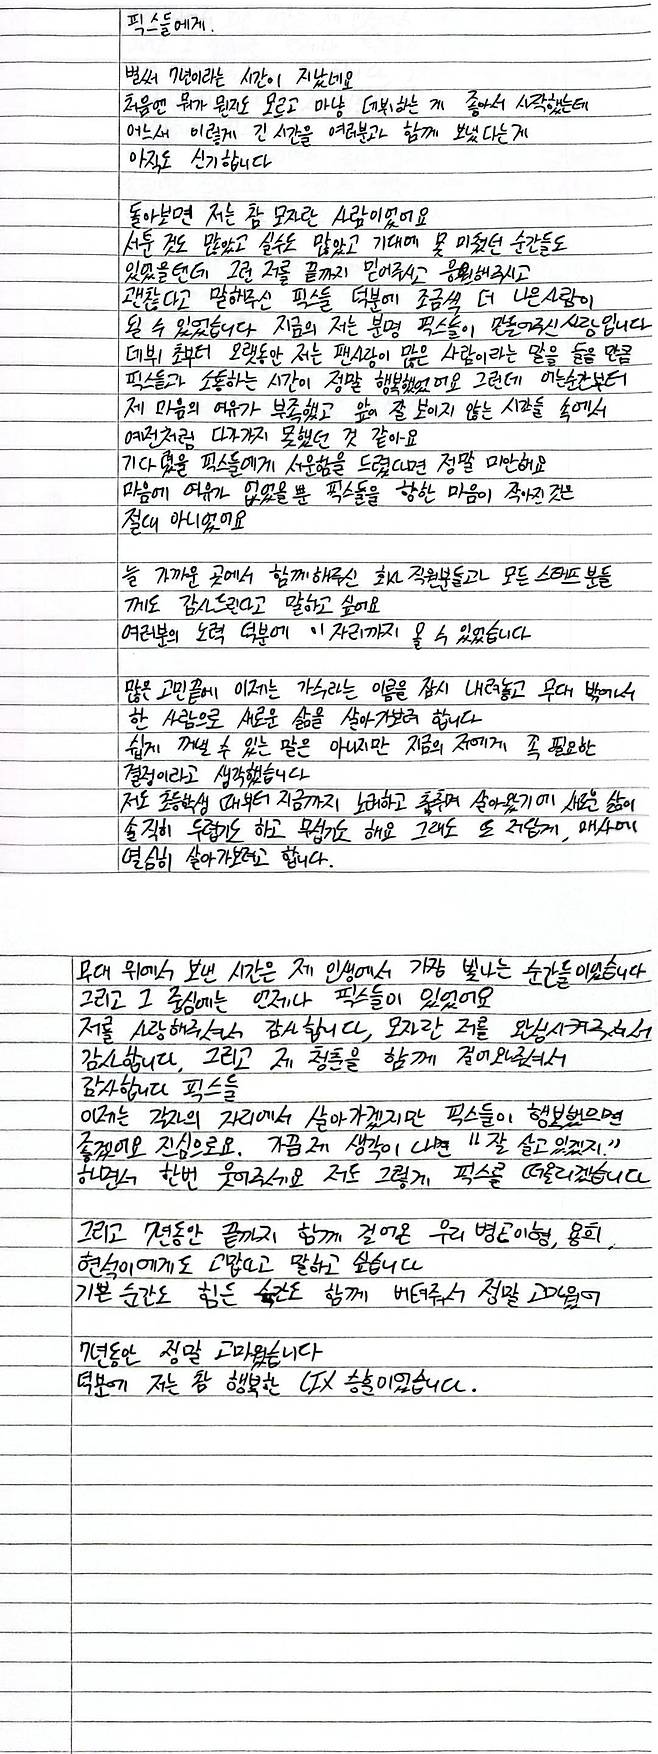 픽스들에게.
벌써 7년이라는 시간이 지났네요
처음엔 뭐가 뭔지도 모르고 마냥 데뷔하는 게 좋아서 시작했는데
어느새 이렇게 긴 시간을 여러분과 함께 보냈다는게
아직도 신기합니다
돌아보면 저는 참 모자란 사람이었어요
서툰 것도 많았고 실수도 많았고 기대에 못 미쳤던 순간들도
있었을텐데 그런 저를 끝까지 믿어주시고 응원해주시고
괜찮다고 말해주신 픽스들 덕분에 조금씩 더 나은사람이
될 수 있었습니다 지금의 저는 분명 픽스들이 만들어주신사람입니다
데뷔 초부터 오랫동안 저는 팬사랑이 많은 사람이라는 말을 들을 만큼
픽스들과 소통하는 시간이 정말 행복했었어요 그런데 어느순간부터
제 마음의 여유가 부족했고 앞이 잘 보이지 않는 시간들 속에서
예전처럼 다가가지 못했던 것 같아요
기다렸을 픽스들에게 서운함을 드렸다면 정말 미안해요
마음에 여유가 없었을 뿐 픽스들을 향한 마음이 작아진것은
절대 아니었어요
늘 가까운 곳에서 함께해주신 회사 직원분들과 모든 스태프 분들
께도 감사드린다고 말하고 싶어요
여러분의 노력 덕분에 이 자리까지 올 수 있었습니다
많은 고민끝에 이제는 가수라는 이름을 잠시 내려놓고 무대 밖에서
한 사람으로 새로운 삶을 살아가보려 합니다
쉽게 꺼낼 수 있는 말은 아니지만 지금의 저에게 꼭 필요한
결정이라고 생각했습니다
저도 초등학생 때부터 지금까지 노래하고 춤추며 살아왔기에 새로운 삶이
솔직히 두렵기도 하고 무섭기도 해요 그래도 또 저답게, 매사에
열심히 살아가보려고 합니다.
무대 위에서 보낸 시간은 제 인생에서 가장 빛나는 순간들이었습니다
그리고 그 중심에는 언제나 픽스들이 있었어요
저를 사랑해주셔서 감사합니다, 모자란 저를 완성시켜주셔서
감사합니다, 그리고 제 청춘을 함께 걸어와주셔서
감사합니다 픽스들
이제는 각자의 자리에서 살아가겠지만 픽스들이 행복했으면
좋겠어요 진심으로요. 가끔 제 생각이 나면 "잘 살고 있겠지."
하면서 한번 웃어주세요 저도 그렇게 픽스를 떠올리겠습니다
그리고 7년동안 끝까지 함께 걸어온 우리 병곤이형, 용희,
현석이에게도 고맙다고 말하고 싶습니다
기쁜 순간도 힘든 순간도 함께 버텨줘서 정말 고마웠어
7년동안 정말 고마웠습니다
덕분에 저는 참 행복한 CIX 승훈이었습니다.